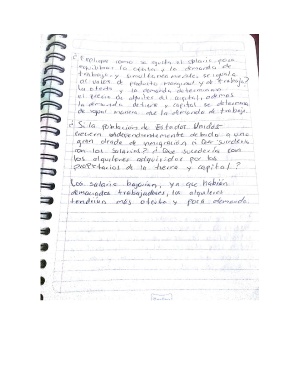 Explique como se ajusta el salario para
equilibrar la oferta y la demanda de
trabajo y simultaneamente se iguala
al valor de producto marginal y de trabajo?
la oferta y la demanda determinan
el precio de alquiler del capital, ademas
la demanda de tierra y capital se determina
de igual manera que la demanda de trabajo.
Si la poblacion de Estados Unidos
creciera debido a una
gran de inmigración ¿ Que sucederia
con los salarios? ¿ Que sucederia con
los alquileres adquiridos por los
propietarios de la tierra y capital?
Los salario bajarian, ya que habrian
demaciados trabajadores, los alquileres
tendrian más oferta y poca demanda.